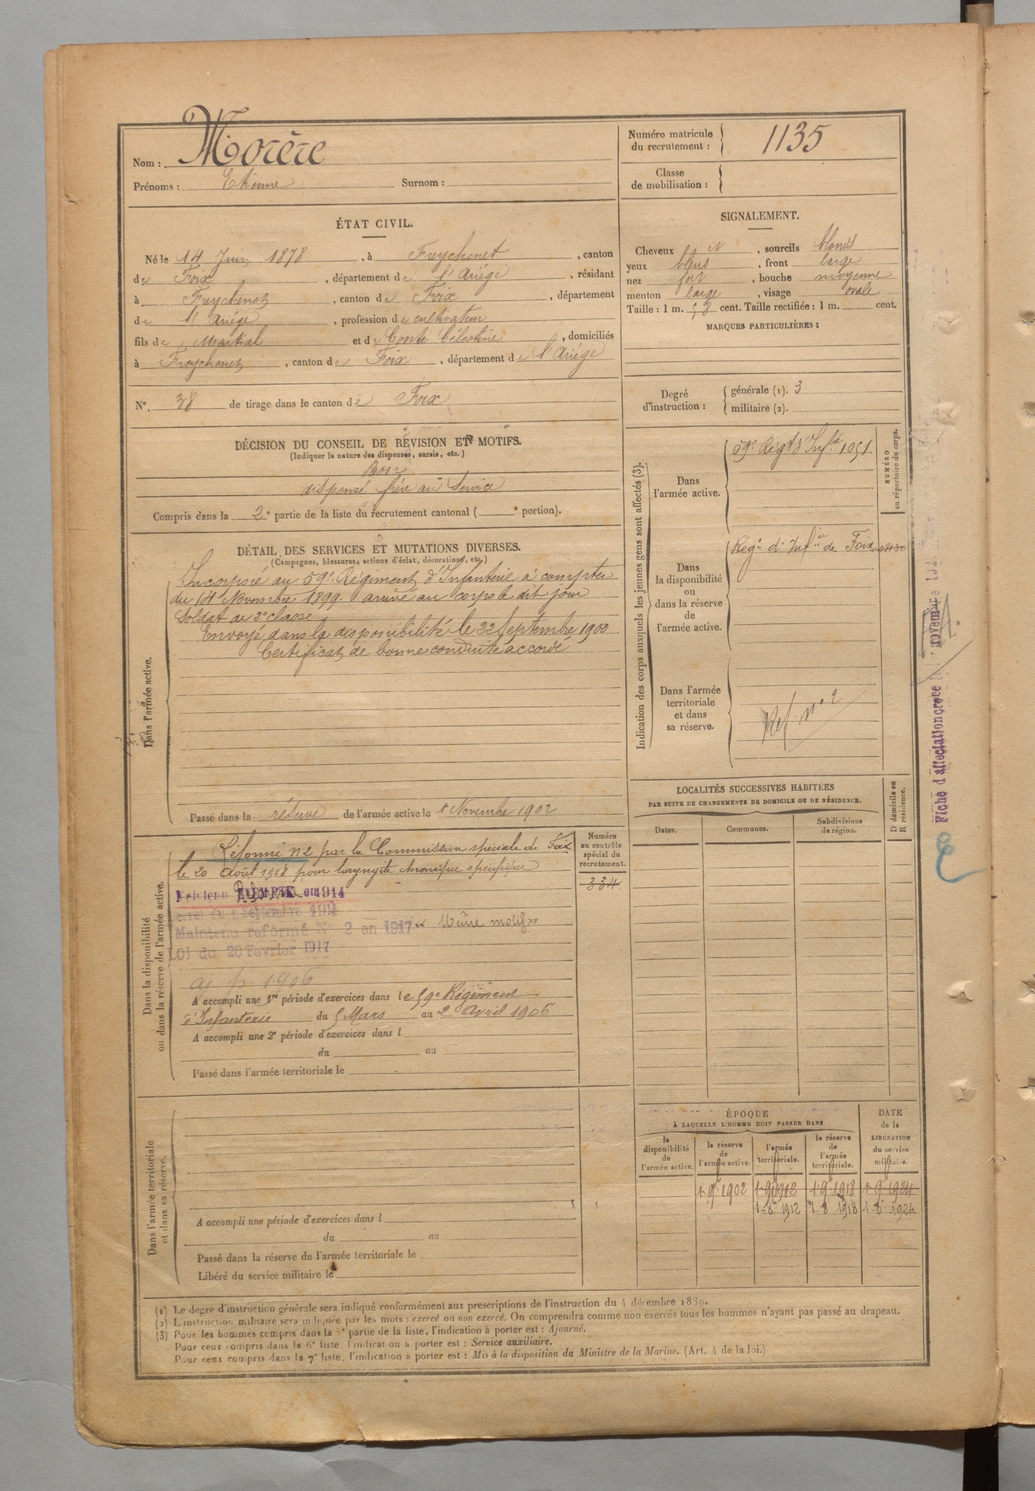 Nom : Morère
Prénoms : Etienne Surnom :
Numéro matricule du recrutement : 1135
Classe de mobilisation :
ÉTAT CIVIL.
Né le 14 Juin 1878, à Freychenet, canton
de Foix, département de l'Ariège, résidant
à Freychenet, canton de Foix, département
de l'Ariège, profession de cultivateur
fils de Martial et de Conte Célestine, domiciliés
à Freychenet, canton de Foix, département de l'Ariège
N°. 38 de tirage dans le canton de Foix
SIGNALEMENT.
Cheveux , sourcils blonds
yeux bleus, front large
nez fort, bouche moyenne
menton large, visage ovale
Taille : 1 m. cent. Taille rectifiée : 1 m. cent.
MARQUES PARTICULIÈRES :
Degré d'instruction : générale (1). 3
militaire (2).
DÉCISION DU CONSEIL DE RÉVISION ET MOTIFS.
(Indiquer la nature des dispenses, sursis, etc.)
Bon
dispensé frère au service
Compris dans la 2e partie de la liste du recrutement cantonal ( e portion).
DÉTAIL DES SERVICES ET MUTATIONS DIVERSES.
(Campagnes, blessures, actions d'éclat, décorations, etc.)
Dans l'armée active.
Incorporé au 59e Régiment d'Infanterie à compter
du 14 Novembre 1899 arrivé au corps le dit jour
Soldat de 2e classe
Envoyé dans la disponibilité le 22 Septembre 1900
Certificat de bonne conduite accordé
Passé dans la réserve de l'armée active le 1 Novembre 1902
Indication des corps auxquels les jeunes gens sont affectés (3).
NUMÉRO au répertoire du corps.
Dans l'armée active. 59e Régt d'Infie 1051
Dans la disponibilité ou dans la réserve de l'armée active. Regt d'Infie de Foix
Dans l'armée territoriale et dans sa réserve. Ref. n° 2
LOCALITÉS SUCCESSIVES HABITÉES
PAR SUITE DE CHANGEMENTS DE DOMICILE OU DE RÉSIDENCE.
Dates. Communes. Subdivisions de région. D domicile ou R résidence.
Dans la disponibilité ou dans la réserve de l'armée active.
Numéro au contrôle spécial du recrutement.
334
Réformé n°2 par la Commission spéciale de Foix
le 20 Août 1908 pour laryngite chronique spécifique
Maintenu RÉFORMÉ en 1914
Maintenu réformé N° 2 en 1917 "Même motif"
LOI du 20 Février 1917
A accompli une 1re période d'exercices dans le 59e Régiment
d'Infanterie du 5 Mars au 2 Avril 1906
A accompli une 2e période d'exercices dans l
du au
Passé dans l'armée territoriale le
Dans l'armée territoriale et dans sa réserve.
A accompli une période d'exercices dans l
du au
Passé dans la réserve de l'armée territoriale le
Libéré du service militaire le
ÉPOQUE
À LAQUELLE L'HOMME DOIT PASSER DANS
DATE de la LIBÉRATION du service militaire.
la disponibilité de l'armée active. la réserve de l'armée active. l'armée territoriale. la réserve de l'armée territoriale.
1 9e 1902 1 9e 1918 1 9e 1924
1 8e 1912 1 8e 1918 1 8e 1924
(1) Le degré d'instruction générale sera indiqué conformément aux prescriptions de l'instruction du 4 décembre 1889.
(2) L'instruction militaire sera indiquée par les mots : exercé ou non exercé. On comprendra comme non exercés tous les hommes n'ayant pas passé au drapeau.
(3) Pour les hommes compris dans la partie de la liste, l'indication à porter est : Ajourné.
Pour ceux compris dans la 6e liste, l'indication à porter est : Service auxiliaire.
Pour ceux compris dans la 7e liste, l'indication à porter est : Mis à la disposition du Ministre de la Marine. (Art. 4 de la loi.)
Fiche d'affectation